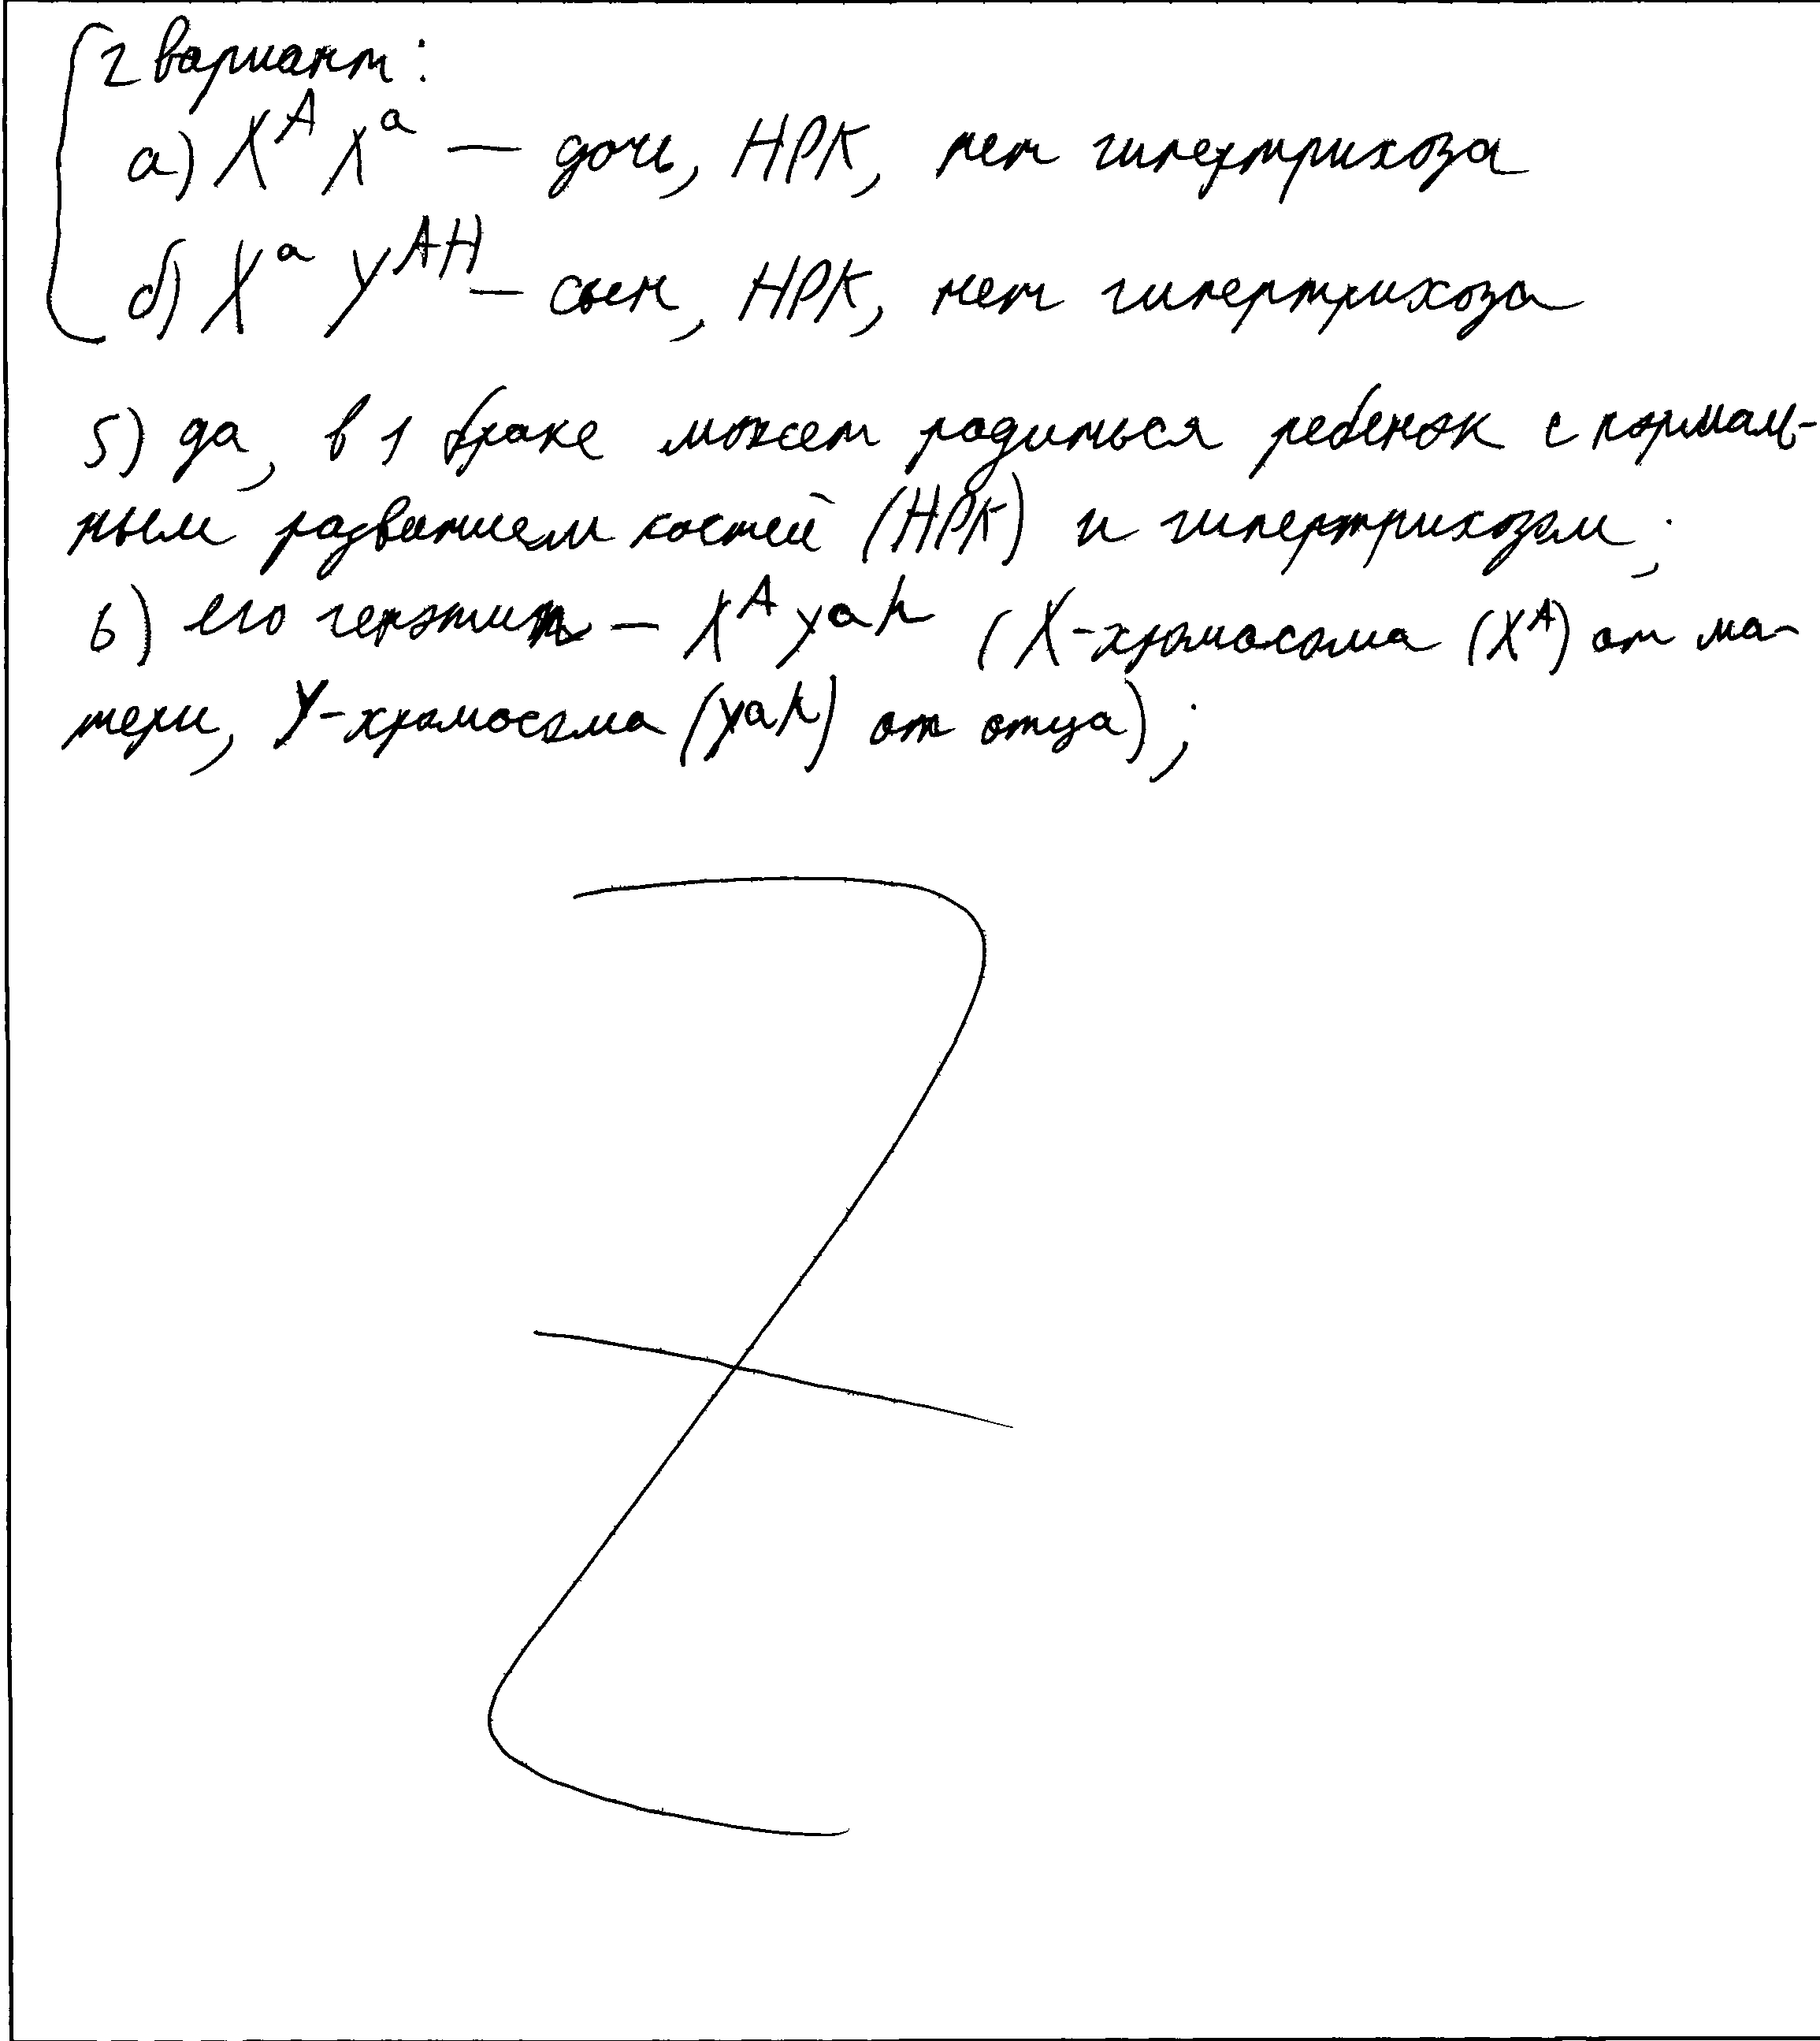 2 вариант:
а) X^A X^a — дочь, НРК, нет гипертрихоза
б) X^a Y^AH — сын, НРК, нет гипертрихоза
5) да, в 1 браке может родиться ребенок с нормаль-
ным развитием костей (НРК) и гипертрихозом;
6) его генотип — X^A Y^ah (X-хромосома (X^A) от ма-
тери, Y-хромосома (Y^ah) от отца);